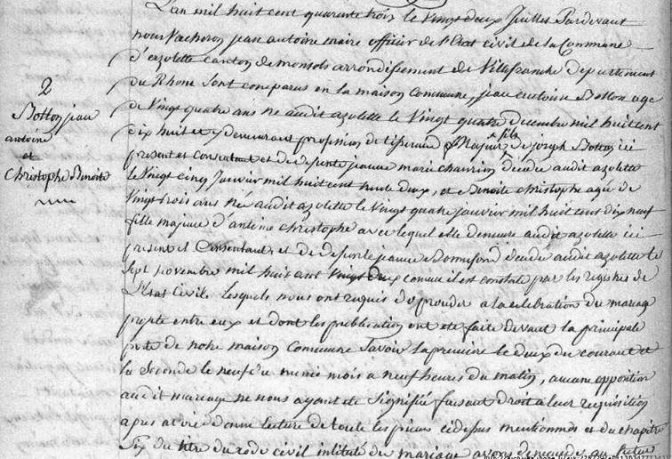 L'an mil huit cent quarante trois le vingt deux Juillet Pardevant
nous Vachoron jean antoine maire officier de l'Etat civil de la Commune
d'azolette canton de monsols arrondissement de Villefranche Departement
du Rhone sont comparus en la maison Commune, jean antoine Botton agé
de Vingt quatre ans né audit azolette le Vingt quatre decembre mil huit cent
dix huit et y demeurant profession de Majeur fils de joseph Botton ici
present et Consentant et de defunte jeanne marie chavrion décédée audit azolette
le Vingt cinq Janvier mil huit cent trente deux, et Benoite christophe agée de
Vingt trois ans née audit azolette le Vingt quatre janvier mil huit cent dix neuf
fille majeure d'antoine christophe avec lequel elle demeure audit azolette ici
present et Consentant, et de defunte jeanne décédée audit azolette le
sept novembre mil huit cent vingt deux comme il est constaté par les registres de
l'Etat Civil. Lesquels nous ont requis de proceder a la celebration du mariage
projeté entre eux et dont les publication ont eté faite devant la principale
porte de notre maison Commune Savoir la premiere le deux du courant et
la Seconde le neuf du meme mois a neuf heures du matin, aucune opposition
audit mariage ne nous ayant eté Signifiée faisant droit a leur requisition
apres avoir donné lecture de toute les pieces cidessus mentionnés et du chapitre
Six du titre du code civil intitulé du mariage avons demandé au futur
2
Botton jean
antoine
et
Christophe Benoite